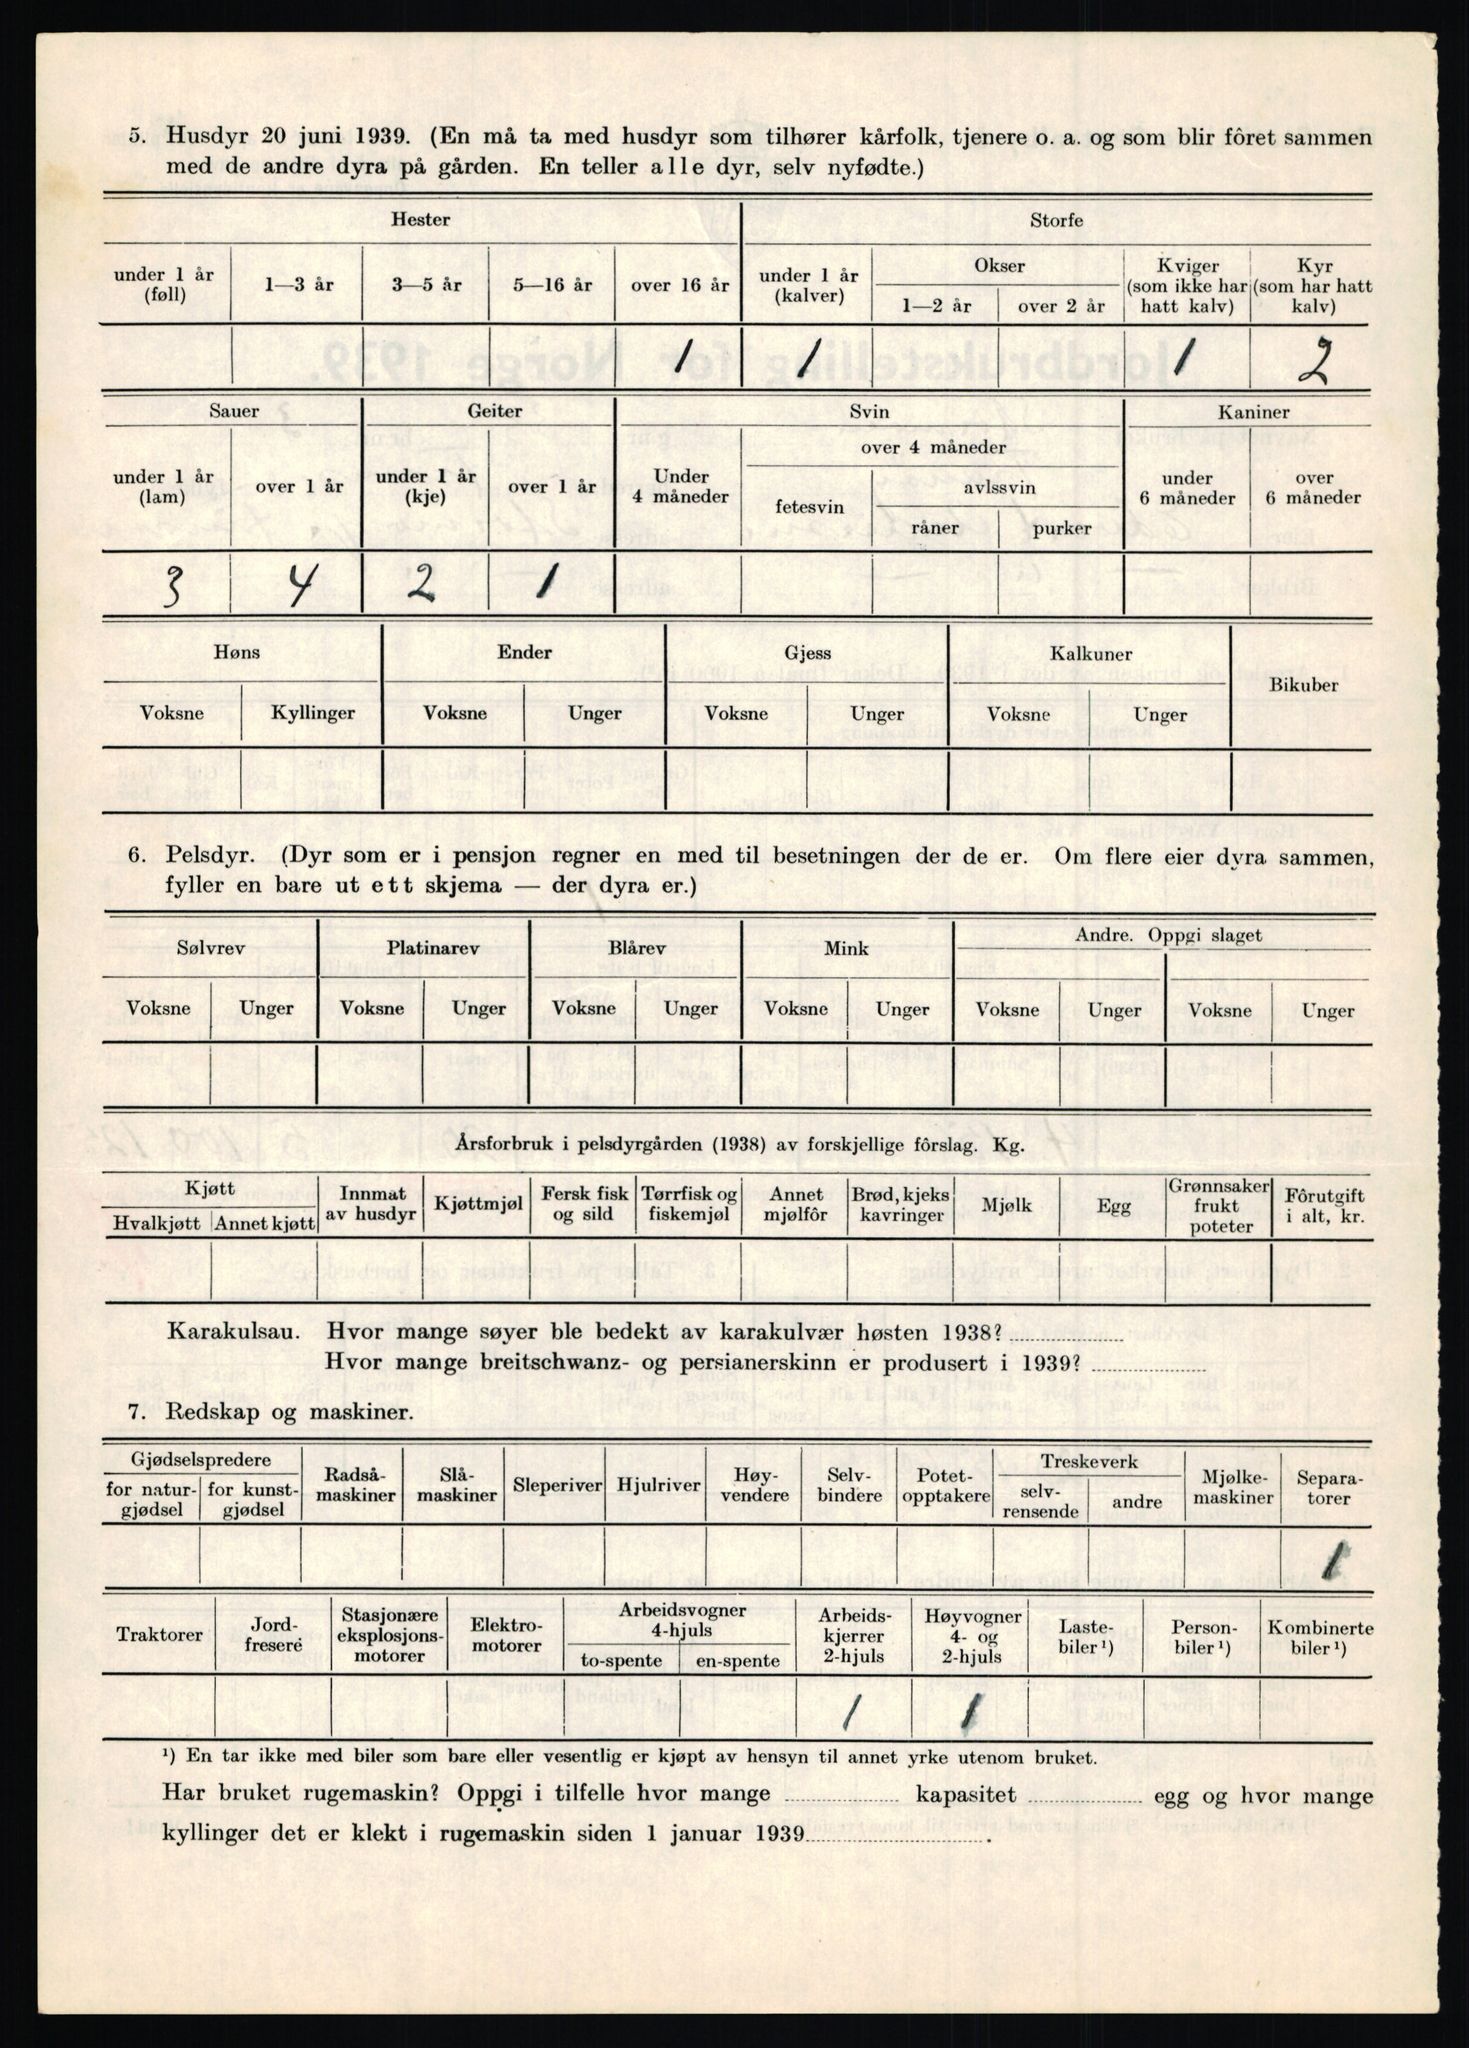 5. Husdyr 20 juni 1939. (En må ta med husdyr som tilhører kårfolk, tjenere o. a. og som blir fôret sammen
med de andre dyra på gården. En teller alle dyr, selv nyfødte.)
Hester Storfe
under 1 år (føll) 1—3 år 3—5 år 5—16 år over 16 år under 1 år (kalver) Okser 1—2 år over 2 år Kviger (som ikke har hatt kalv) Kyr (som har hatt kalv)
1 1 1 2
Sauer Geiter Svin Kaniner
under 1 år (lam) over 1 år under 1 år (kje) over 1 år Under 4 måneder over 4 måneder fetesvin avlssvin råner purker under 6 måneder over 6 måneder
3 4 2 1
Høns Ender Gjess Kalkuner Bikuber
Voksne Kyllinger Voksne Unger Voksne Unger Voksne Unger
6. Pelsdyr. (Dyr som er i pensjon regner en med til besetningen der de er. Om flere eier dyra sammen,
fyller en bare ut ett skjema — der dyra er.)
Sølvrev Platinarev Blårev Mink Andre. Oppgi slaget
Voksne Unger Voksne Unger Voksne Unger Voksne Unger Voksne Unger Voksne Unger
Årsforbruk i pelsdyrgården (1938) av forskjellige fôrslag. Kg.
Kjøtt Hvalkjøtt Annet kjøtt Innmat av husdyr Kjøttmjøl Fersk fisk og sild Tørrfisk og fiskemjøl Annet mjølfôr Brød, kjeks kavringer Mjølk Egg Grønnsaker frukt poteter Fôrutgift i alt, kr.
Karakulsau. Hvor mange søyer ble bedekt av karakulvær høsten 1938?
Hvor mange breitschwanz- og persianerskinn er produsert i 1939?
7. Redskap og maskiner.
Gjødselspredere for natur-gjødsel for kunst-gjødsel Radså-maskiner Slå-maskiner Sleperiver Hjulriver Høy-vendere Selv-bindere Potet-opptakere Treskeverk selv-rensende andre Mjølke-maskiner Separa-torer
1
Traktorer Jord-fresere Stasjonære eksplosjons-motorer Elektro-motorer Arbeidsvogner 4-hjuls to-spente en-spente Arbeids-kjerrer 2-hjuls Høyvogner 4- og 2-hjuls Laste-biler ¹) Person-biler ¹) Kombinerte biler ¹)
1 1
¹) En tar ikke med biler som bare eller vesentlig er kjøpt av hensyn til annet yrke utenom bruket.
Har bruket rugemaskin? Oppgi i tilfelle hvor mange kapasitet egg og hvor mange
kyllinger det er klekt i rugemaskin siden 1 januar 1939 .